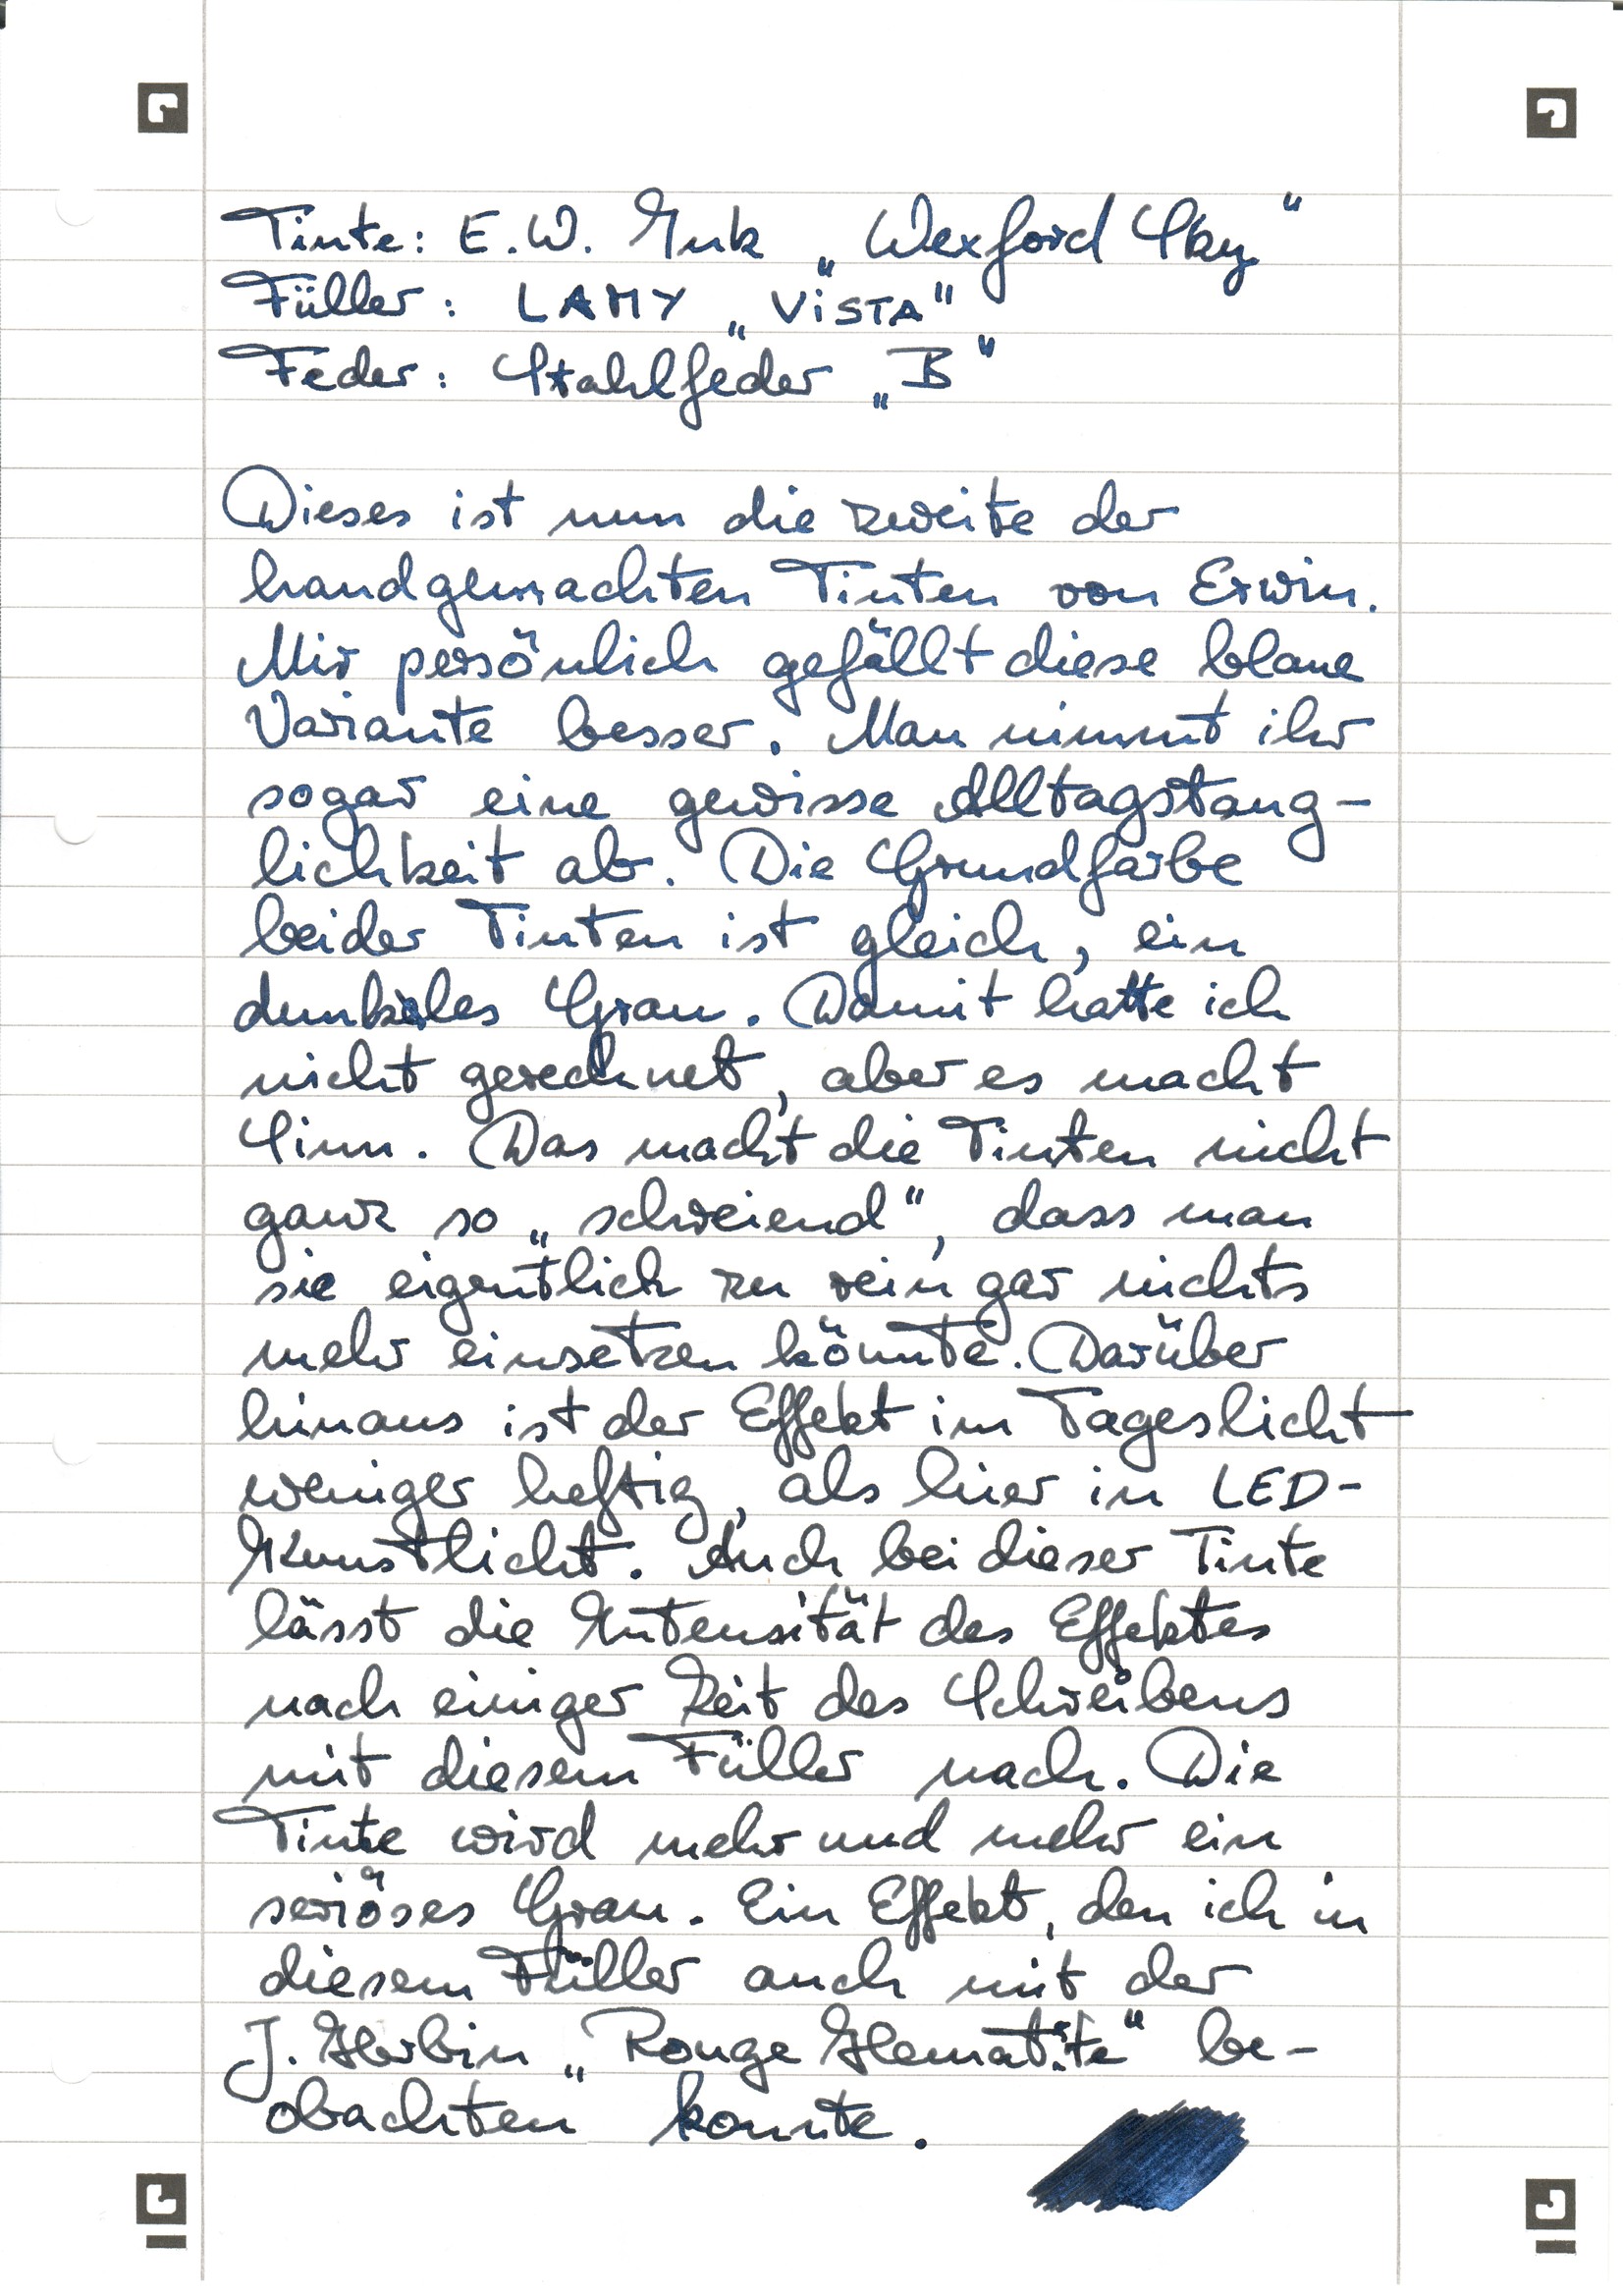 Tinte: E.W. Ink „Wexford Sky“
Füller: LAMY „ViSTA“
Feder: Stahlfeder „B“
Dieses ist nun die zweite der
handgemachten Tinten von Erwin.
Mir persönlich gefällt diese blaue
Variante besser. Man nimmt ihr
sogar eine gewisse Alltagstaug-
lichkeit ab. Die Grundfarbe
beider Tinten ist gleich, ein
dunkles Grau. Damit hatte ich
nicht gerechnet, aber es macht
Sinn. Das macht die Tinten nicht
ganz so „schreiend“, dass man
sie eigentlich zu rein gar nichts
mehr einsetzen könnte. Darüber
hinaus ist der Effekt im Tageslicht
weniger heftig, als hier in LED-
Kunstlicht. Auch bei dieser Tinte
lässt die Intensität des Effektes
nach einiger Zeit des Schreibens
mit diesem Füller nach. Die
Tinte wird mehr und mehr ein
seriöses Grau. Ein Effekt, den ich in
diesem Füller auch mit der
J. Herbin „Rouge Hematite“ be-
obachten konnte.